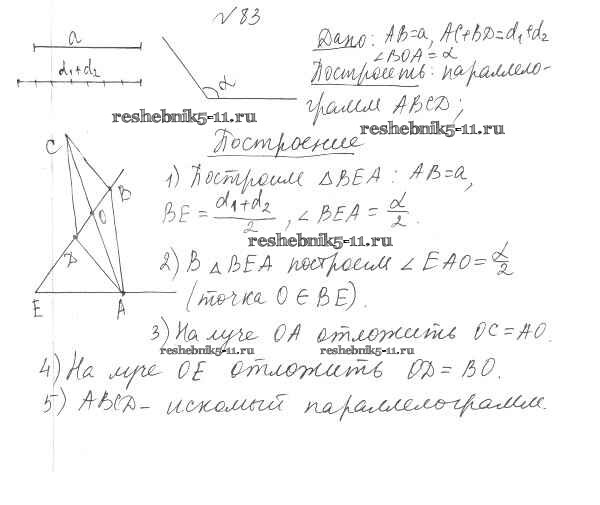 № 83
a
d₁+d₂
α
Дано: AB=a, AC+BD=d₁+d₂
∠BOA = α
Построить: параллело-
грамм ABCD;
reshebnik5-11.ru
reshebnik5-11.ru
Построение
C
B
O
D
E
A
1) Построим △BEA: AB=a,
BE = (d₁+d₂)/2, ∠BEA = α/2.
reshebnik5-11.ru
2) В △BEA построим ∠EAO = α/2
(точка O ∈ BE).
3) На луче OA отложить OC = AO.
reshebnik5-11.ru
reshebnik5-11.ru
4) На луче OE отложить OD = BO.
5) ABCD – искомый параллелограмм.